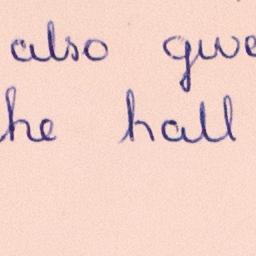 also give
he hall